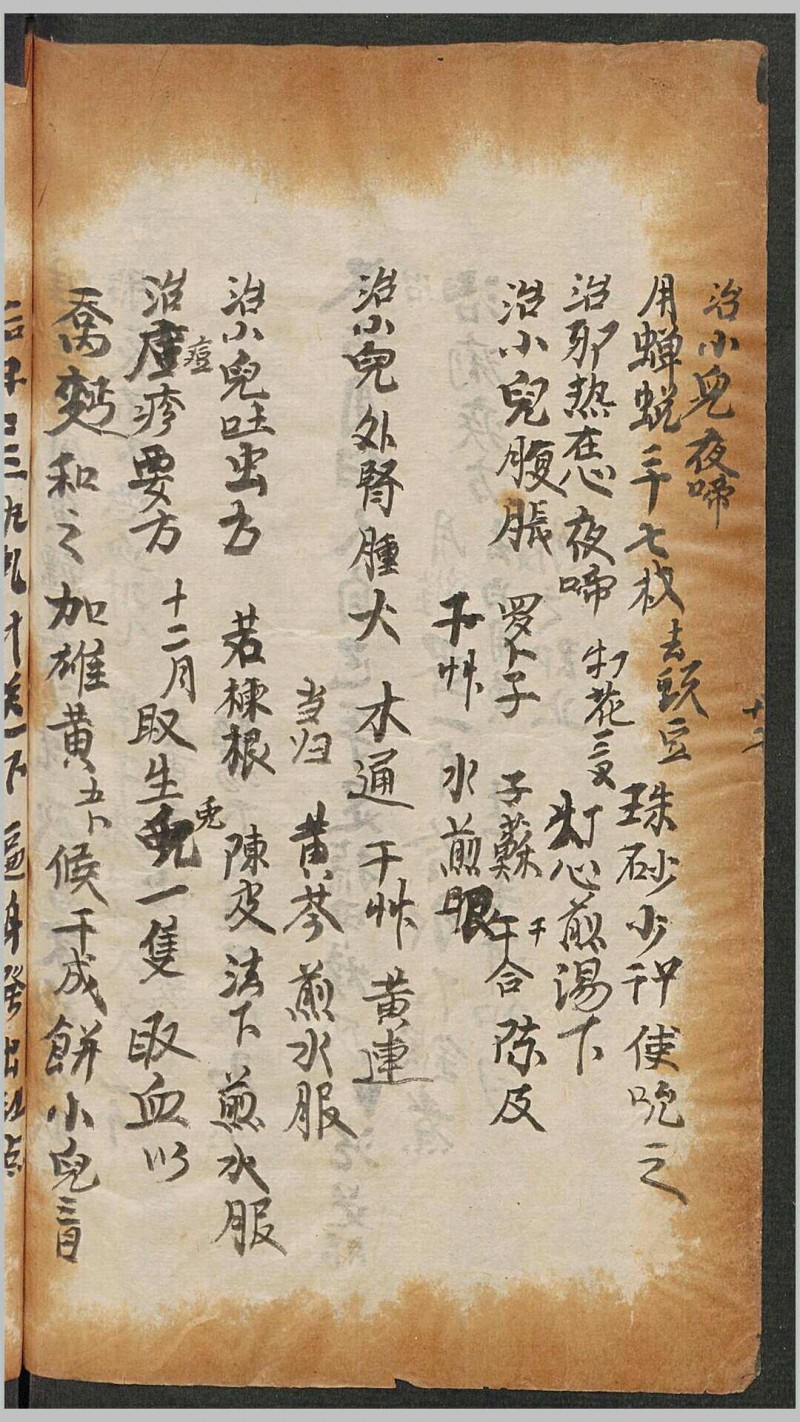 治小兒夜啼
用蟬蜕二十七枚去頭足 珠砂少許 使吮之
治邪热在心夜啼 灯花三叉 灯心煎湯下
治小兒腹脹 罗卜子 子蘇 干合 陈皮
干艸 水煎服
治小兒外腎腫大 木通 干艸 黄連
当归 黄芩 煎水服
治小兒吐虫方 若楝根 陳皮 法下 煎水服
治痘疹要方 十二月取生兎一隻 取血以
喬麵和之加雄黄五卜候干成餅小兒三日
十二